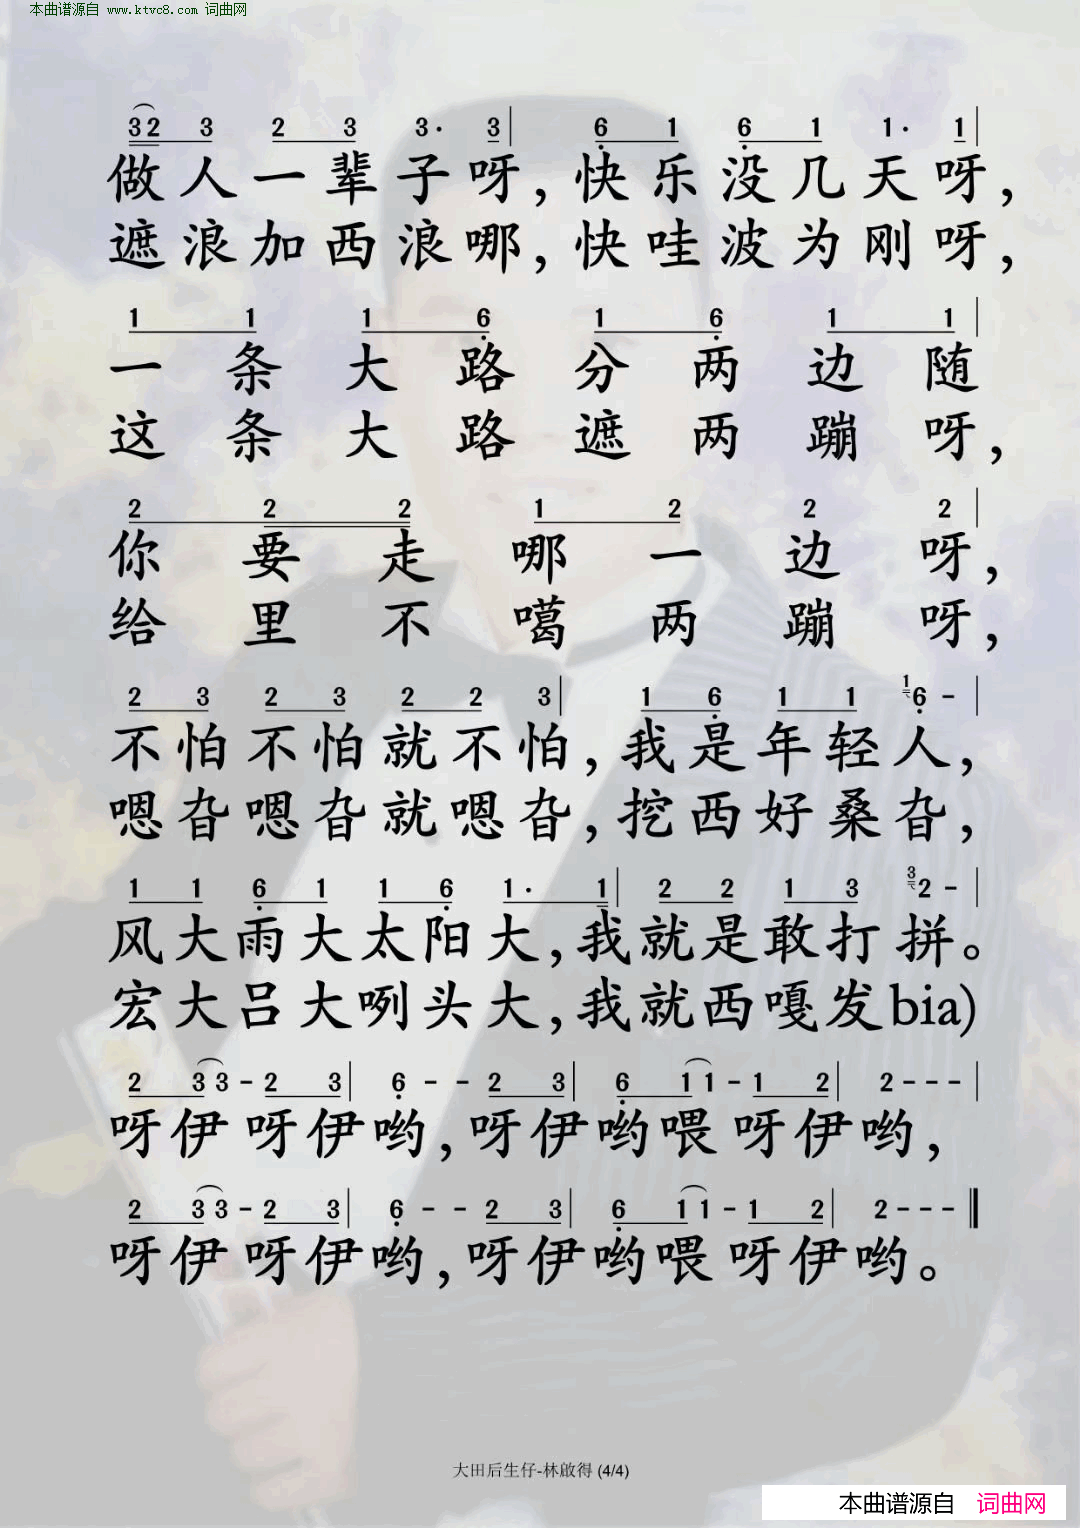 本曲谱源自 www.ktvc8.com 词曲网
3 2 3 2 3 3· 3 | 6 1 6 1 1· 1 |
做人一辈子呀，快乐没几天呀，
遮浪加西浪哪，快哇波为刚呀，
1 1 1 6 1 6 1 1 |
一条大路分两边随
这条大路遮两蹦呀，
2 2 2 1 2 2 2 |
你要走哪一边呀，
给里不噶两蹦呀，
2 3 2 3 2 2 3 | 1 6 1 1 1 6 - |
不怕不怕就不怕，我是年轻人，
嗯旮嗯旮就嗯旮，挖西好桑旮，
1 1 6 1 1 6 1· 1 | 2 2 1 3 3 2 - |
风大雨大太阳大，我就是敢打拼。
宏大吕大咧头大，我就西嘎发bia)
2 3 3 - 2 3 | 6 - - 2 3 | 6 1 1 - 1 2 | 2 - - - |
呀伊呀伊哟，呀伊哟喂呀伊哟，
2 3 3 - 2 3 | 6 - - 2 3 | 6 1 1 - 1 2 | 2 - - - ‖
呀伊呀伊哟，呀伊哟喂呀伊哟。
大田后生仔-林啟得 (4/4)
本曲谱源自 词曲网